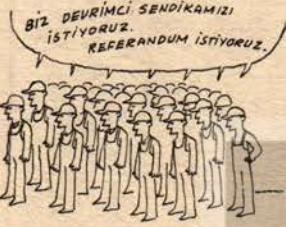 BİZ DEVRİMCİ SENDİKAMIZI
İSTİYORUZ.
REFERANDUM İSTİYORUZ.